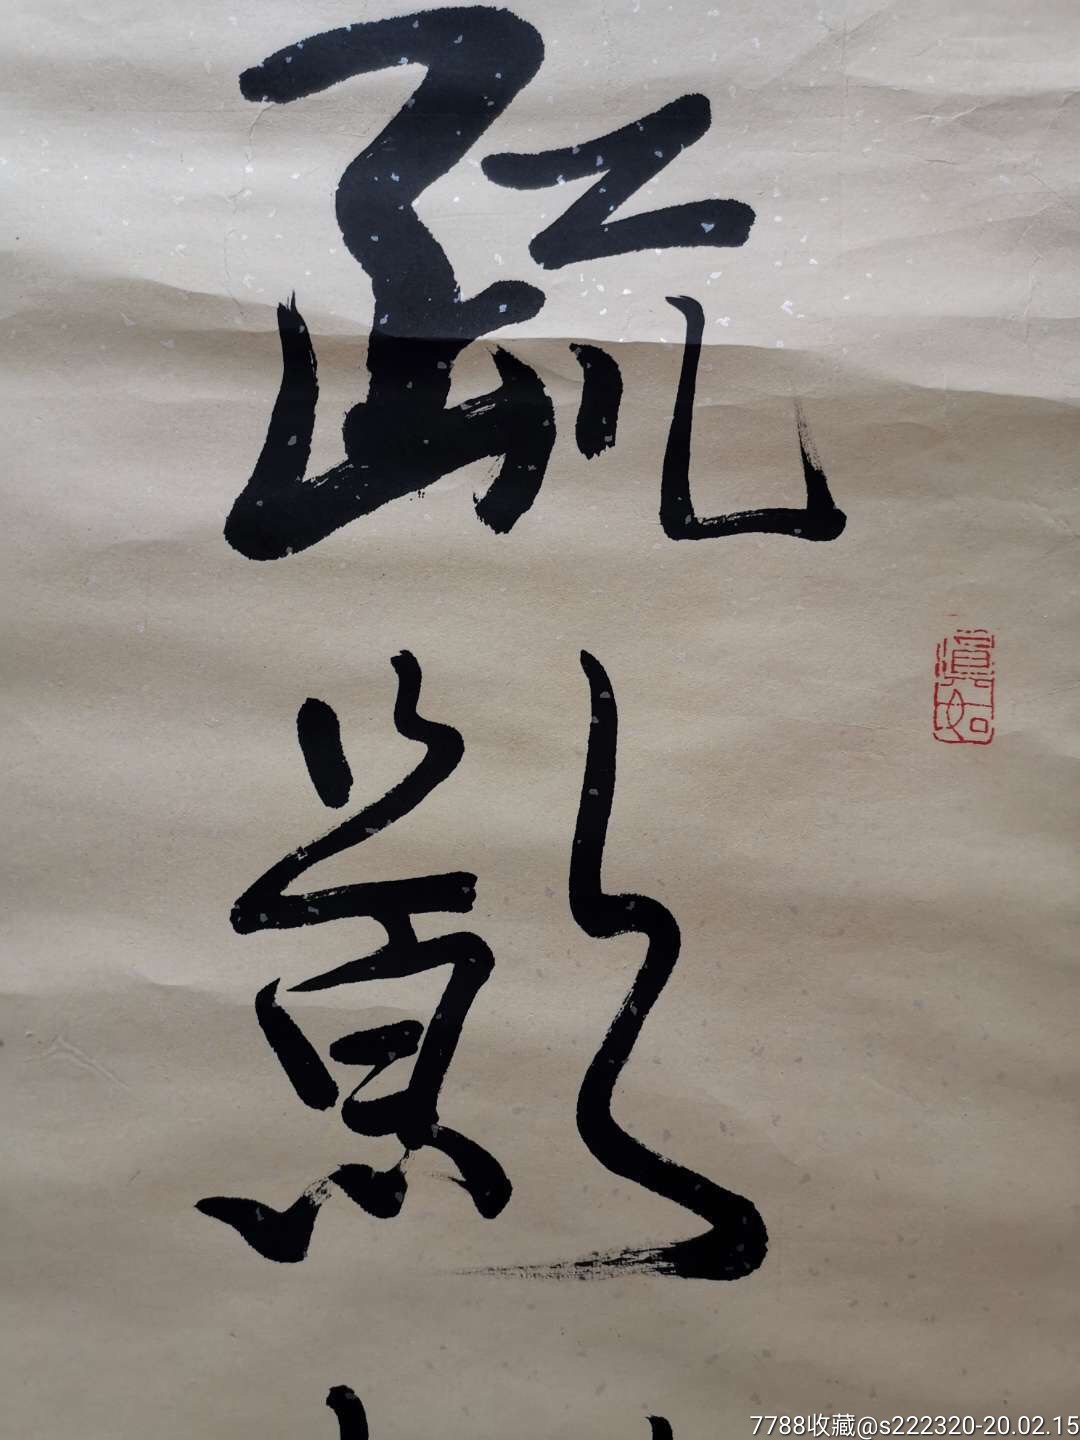 疏
影
7788收藏@s222320-20.02.15